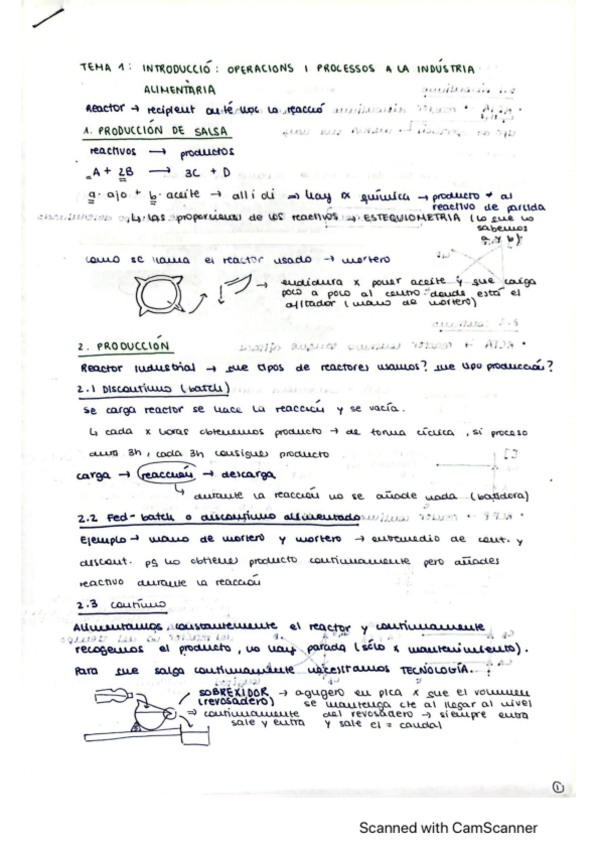 TEMA 1: INTRODUCCIÓ: OPERACIONS I PROCESSOS A LA INDÚSTRIA
ALIMENTÀRIA
Reactor → recipient on té lloc la reacció
1. PRODUCCIÓN DE SALSA
reactivos → productos
A + 2B → 3C + D
a. ajo + b. aceite → alli di ⇒ hay rx química → producto ≠ al
reactivo de partida
↳ las proporciones de los reactivos → ESTEQUIOMETRIA (lo que no
sabemos
a y b).
como se llama el reactor usado → mortero
→ endidura x poner aceite y que caiga
poco a poco al centro donde está el
agitador (mano de mortero)
2. PRODUCCIÓN
Reactor Industrial → que tipos de reactores usamos? que tipo producción?
2.1 Discontinuo (batch)
se carga reactor se hace la reacción y se vacía.
↳ cada x horas obtenemos producto → de forma cíclica, si proceso
dura 3h, cada 3h consigues producto
carga → reacción → descarga
durante la reacción no se añade nada (batidora)
2.2 Fed-batch o discontinuo alimentado
Ejemplo → mano de mortero y mortero → entremedio de cont. y
discont. pq no obtienes producto continuamente pero añades
reactivo durante la reacción
2.3 continuo
Alimentamos constantemente el reactor y continuamente
recogemos el producto, no hay parada (sólo x mantenimiento).
Para que salga continuamente necesitamos TECNOLOGÍA.
SOBREXIDOR → agugero en pica x que el volumen
(revosadero) se mantenga cte al llegar al nivel
⇒ continuamente del revosadero → siempre entra
sale y entra y sale el = caudal
1
Scanned with CamScanner